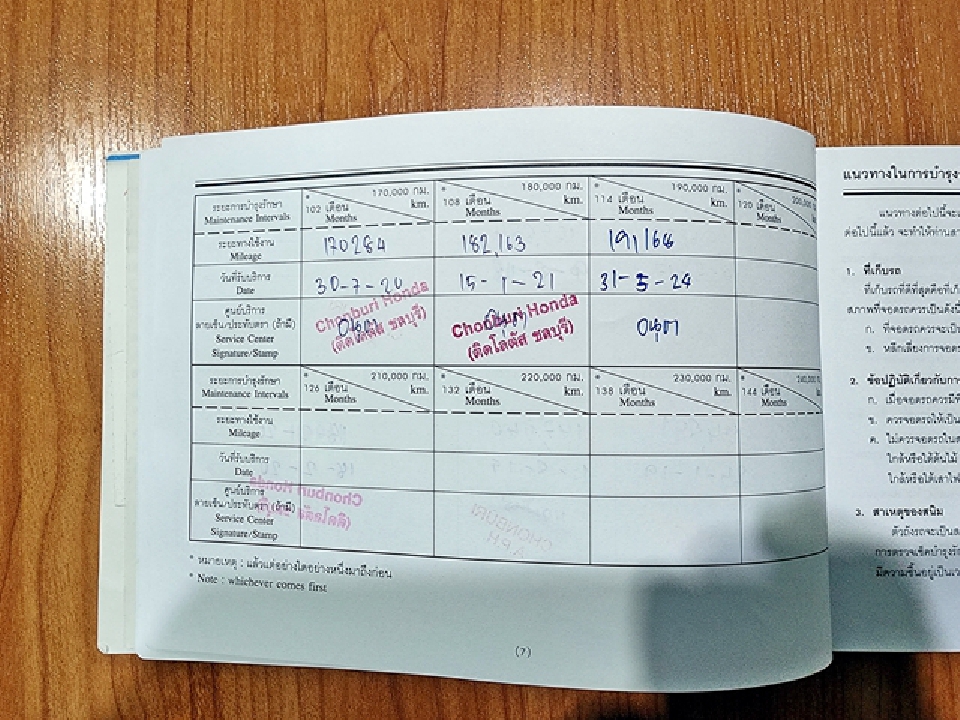 ระยะการบำรุงรักษา
Maintenance Intervals
* 102 เดือน Months 170,000 กม. km.
* 108 เดือน Months 180,000 กม. km.
* 114 เดือน Months 190,000 กม. km.
* 120 เดือน Months
ระยะทางใช้งาน
Mileage
170284
182,163
วันที่รับบริการ
Date
30-7-20
15-1-21
31-5-24
ศูนย์บริการ
ลายเซ็น/ประทับตรา (ถ้ามี)
Service Center
Signature/Stamp
Chonburi Honda
(ติดโลตัส ชลบุรี)
Chonburi Honda
(ติดโลตัส ชลบุรี)
ระยะการบำรุงรักษา
Maintenance Intervals
* 126 เดือน Months 210,000 กม. km.
* 132 เดือน Months 220,000 กม. km.
* 138 เดือน Months 230,000 กม. km.
* 144 เดือน Months
ระยะทางใช้งาน
Mileage
วันที่รับบริการ
Date
ศูนย์บริการ
ลายเซ็น/ประทับตรา (ถ้ามี)
Service Center
Signature/Stamp
* หมายเหตุ : แล้วแต่อย่างใดอย่างหนึ่งมาถึงก่อน
* Note : whichever comes first
(7)
แนวทางในการบำรุง
แนวทางต่อไปนี้จะ
ต่อไปนี้แล้ว จะทำให้ท่าน
1. ที่เก็บรถ
ที่เก็บรถที่ดีที่สุดคือที่
สภาพที่จอดรถควรเป็นดังนี้
ก. ที่จอดรถควรจะ
ข. หลีกเลี่ยงการจอด
2. ข้อปฏิบัติเกี่ยวกับ
ก. เมื่อจอดรถควร
ข. ควรจอดรถให้
ค. ไม่ควรจอดรถใน
ใกล้หรือใต้ต้นไม้
ใกล้หรือใต้เสาไฟ
3. สาเหตุของสนิม
ตัวถังรถจะเป็น
การตรวจเช็คบำรุง
มีความชื้นอยู่เป็น